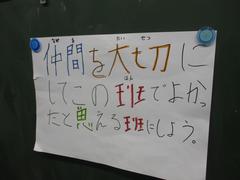 なか ま たい せつ
仲間を大切に
はん
してこの班でよかっ
たと思える班にしよう。